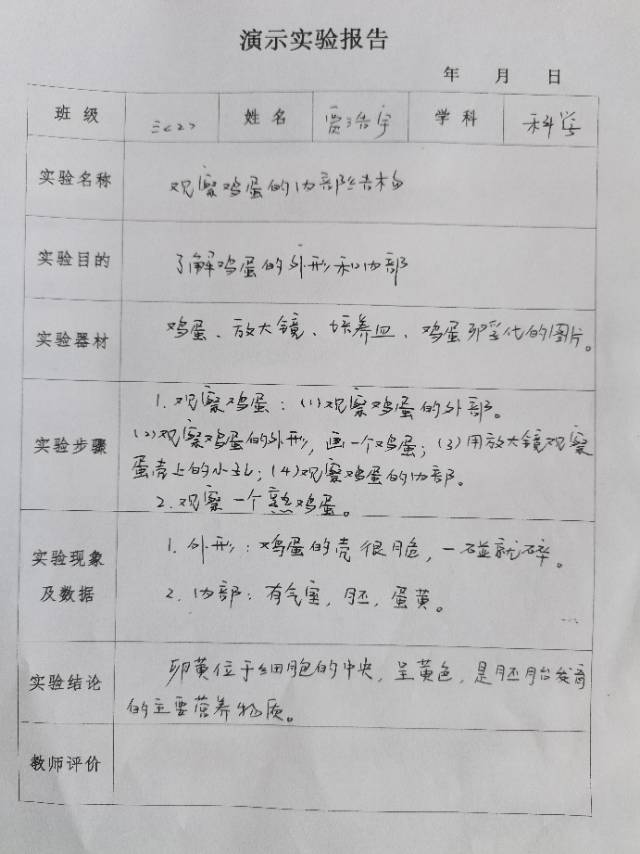 演示实验报告
年 月 日
班级 三<2> 姓名 贾浩宇 学科 科学
实验名称 观察鸡蛋的内部结构
实验目的 了解鸡蛋的外形和内部
实验器材 鸡蛋、放大镜、培养皿、鸡蛋卵孚化的图片。
实验步骤
1. 观察鸡蛋：(1)观察鸡蛋的外部。
(2)观察鸡蛋的外形，画一个鸡蛋；(3)用放大镜观察
蛋壳上的小孔；(4)观察鸡蛋的内部。
2. 观察一个熟鸡蛋。
实验现象
及数据
1. 外形：鸡蛋的壳很脆，一碰就碎。
2. 内部：有气室，胚，蛋黄。
实验结论
卵黄位于细胞的中央，呈黄色，是胚胎发育
的主要营养物质。
教师评价